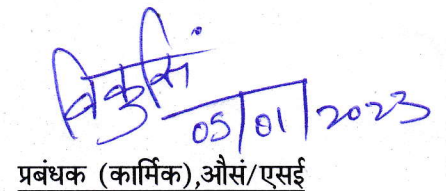 विकुसिं
05/01/2023
प्रबंधक (कार्मिक),औसं/एसई